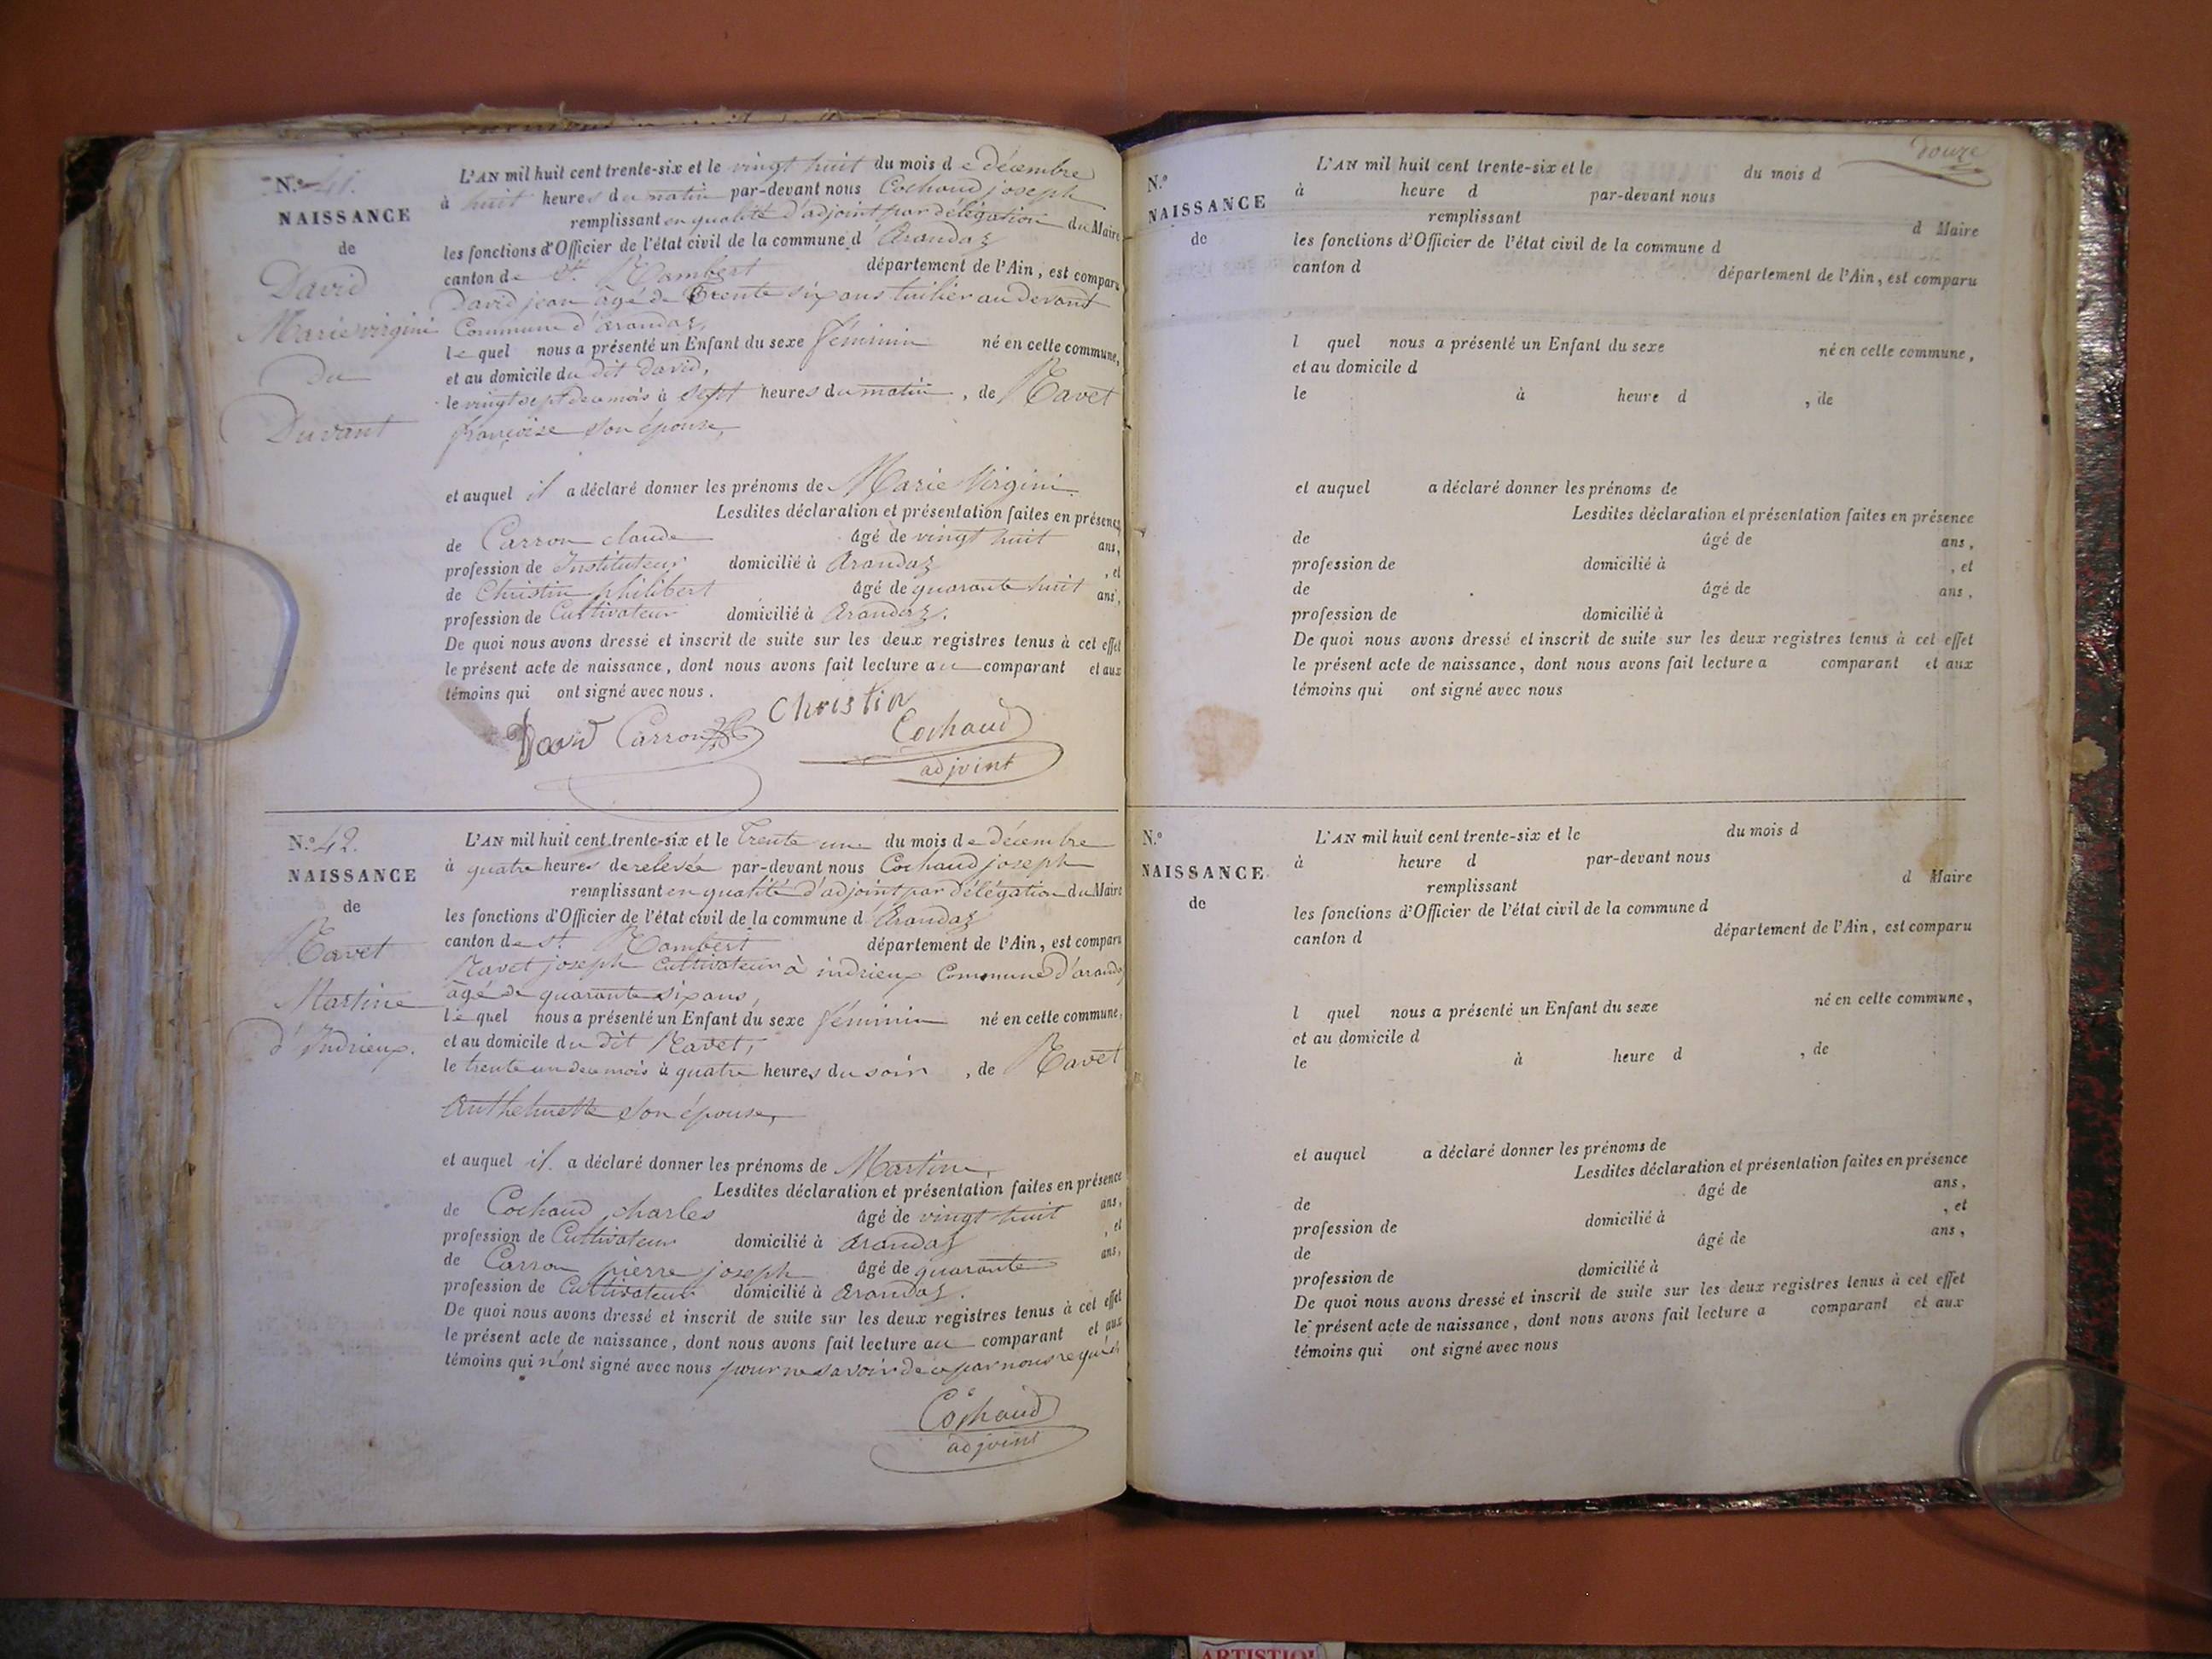 N.° 41.
NAISSANCE
de
David
Marie virgini
Du
Duvant
L'AN mil huit cent trente-six et le vingt huit du mois de décembre
à huit heures du matin par-devant nous Cochaud joseph
remplissant en qualité d'adjoint par délégation du Maire
les fonctions d'Officier de l'état civil de la commune d'arandaz
canton de St. Rambert département de l'Ain, est comparu
David jean âgé de trente six ans tuilier au devant
Commune d'arandaz,
lequel nous a présenté un Enfant du sexe féminin né en cette commune,
et au domicile du dit David,
le vingt sept de ce mois à sept heures du matin, de Ravet
françoise son épouse,
et auquel il a déclaré donner les prénoms de Marie Virgini
Lesdites déclaration et présentation faites en présence
de Carron claude âgé de vingt huit ans,
profession de Instituteur domicilié à Arandaz, et
de Christin philibert âgé de quarante huit ans,
profession de Cultivateur domicilié à Arandaz.
De quoi nous avons dressé et inscrit de suite sur les deux registres tenus à cet effet
le présent acte de naissance, dont nous avons fait lecture au comparant et aux
témoins qui ont signé avec nous.
David Carron Christin
Cochaud
adjoint
N.° 42.
NAISSANCE
de
Ravet
Martine
d'Indrieux.
L'AN mil huit cent trente-six et le trente une du mois de décembre
à quatre heures de relevée par-devant nous Cochaud joseph
remplissant en qualité d'adjoint par délégation du Maire
les fonctions d'Officier de l'état civil de la commune d'Arandaz
canton de St. Rambert département de l'Ain, est comparu
Ravet joseph cultivateur à indrieux Commune d'arandaz
âgé de quarante six ans,
lequel nous a présenté un Enfant du sexe féminin né en cette commune,
et au domicile du dit Ravet,
le trente un de ce mois à quatre heures du soir, de Ravet
Anthelmette son épouse,
et auquel il a déclaré donner les prénoms de Martine,
Lesdites déclaration et présentation faites en présence
de Cochaud charles âgé de vingt huit ans,
profession de Cultivateur domicilié à Arandaz, et
de Carron pierre joseph âgé de quarante ans,
profession de Cultivateur domicilié à Arandaz.
De quoi nous avons dressé et inscrit de suite sur les deux registres tenus à cet effet
le présent acte de naissance, dont nous avons fait lecture au comparant et aux
témoins qui n'ont signé avec nous pour ne savoir de ce par nous requis
Cochaud
adjoint
douze
N.°
NAISSANCE
de
L'AN mil huit cent trente-six et le du mois d
à heure d par-devant nous
remplissant d Maire
les fonctions d'Officier de l'état civil de la commune d
canton d département de l'Ain, est comparu
l quel nous a présenté un Enfant du sexe né en cette commune,
et au domicile d
le à heure d , de
et auquel a déclaré donner les prénoms de
Lesdites déclaration et présentation faites en présence
de âgé de ans,
profession de domicilié à , et
de âgé de ans,
profession de domicilié à
De quoi nous avons dressé et inscrit de suite sur les deux registres tenus à cet effet
le présent acte de naissance, dont nous avons fait lecture a comparant et aux
témoins qui ont signé avec nous
N.°
NAISSANCE
de
L'AN mil huit cent trente-six et le du mois d
à heure d par-devant nous
remplissant d Maire
les fonctions d'Officier de l'état civil de la commune d
canton d département de l'Ain, est comparu
l quel nous a présenté un Enfant du sexe né en cette commune,
et au domicile d
le à heure d , de
et auquel a déclaré donner les prénoms de
Lesdites déclaration et présentation faites en présence
de âgé de ans,
profession de domicilié à , et
de âgé de ans,
profession de domicilié à
De quoi nous avons dressé et inscrit de suite sur les deux registres tenus à cet effet
le présent acte de naissance, dont nous avons fait lecture a comparant et aux
témoins qui ont signé avec nous